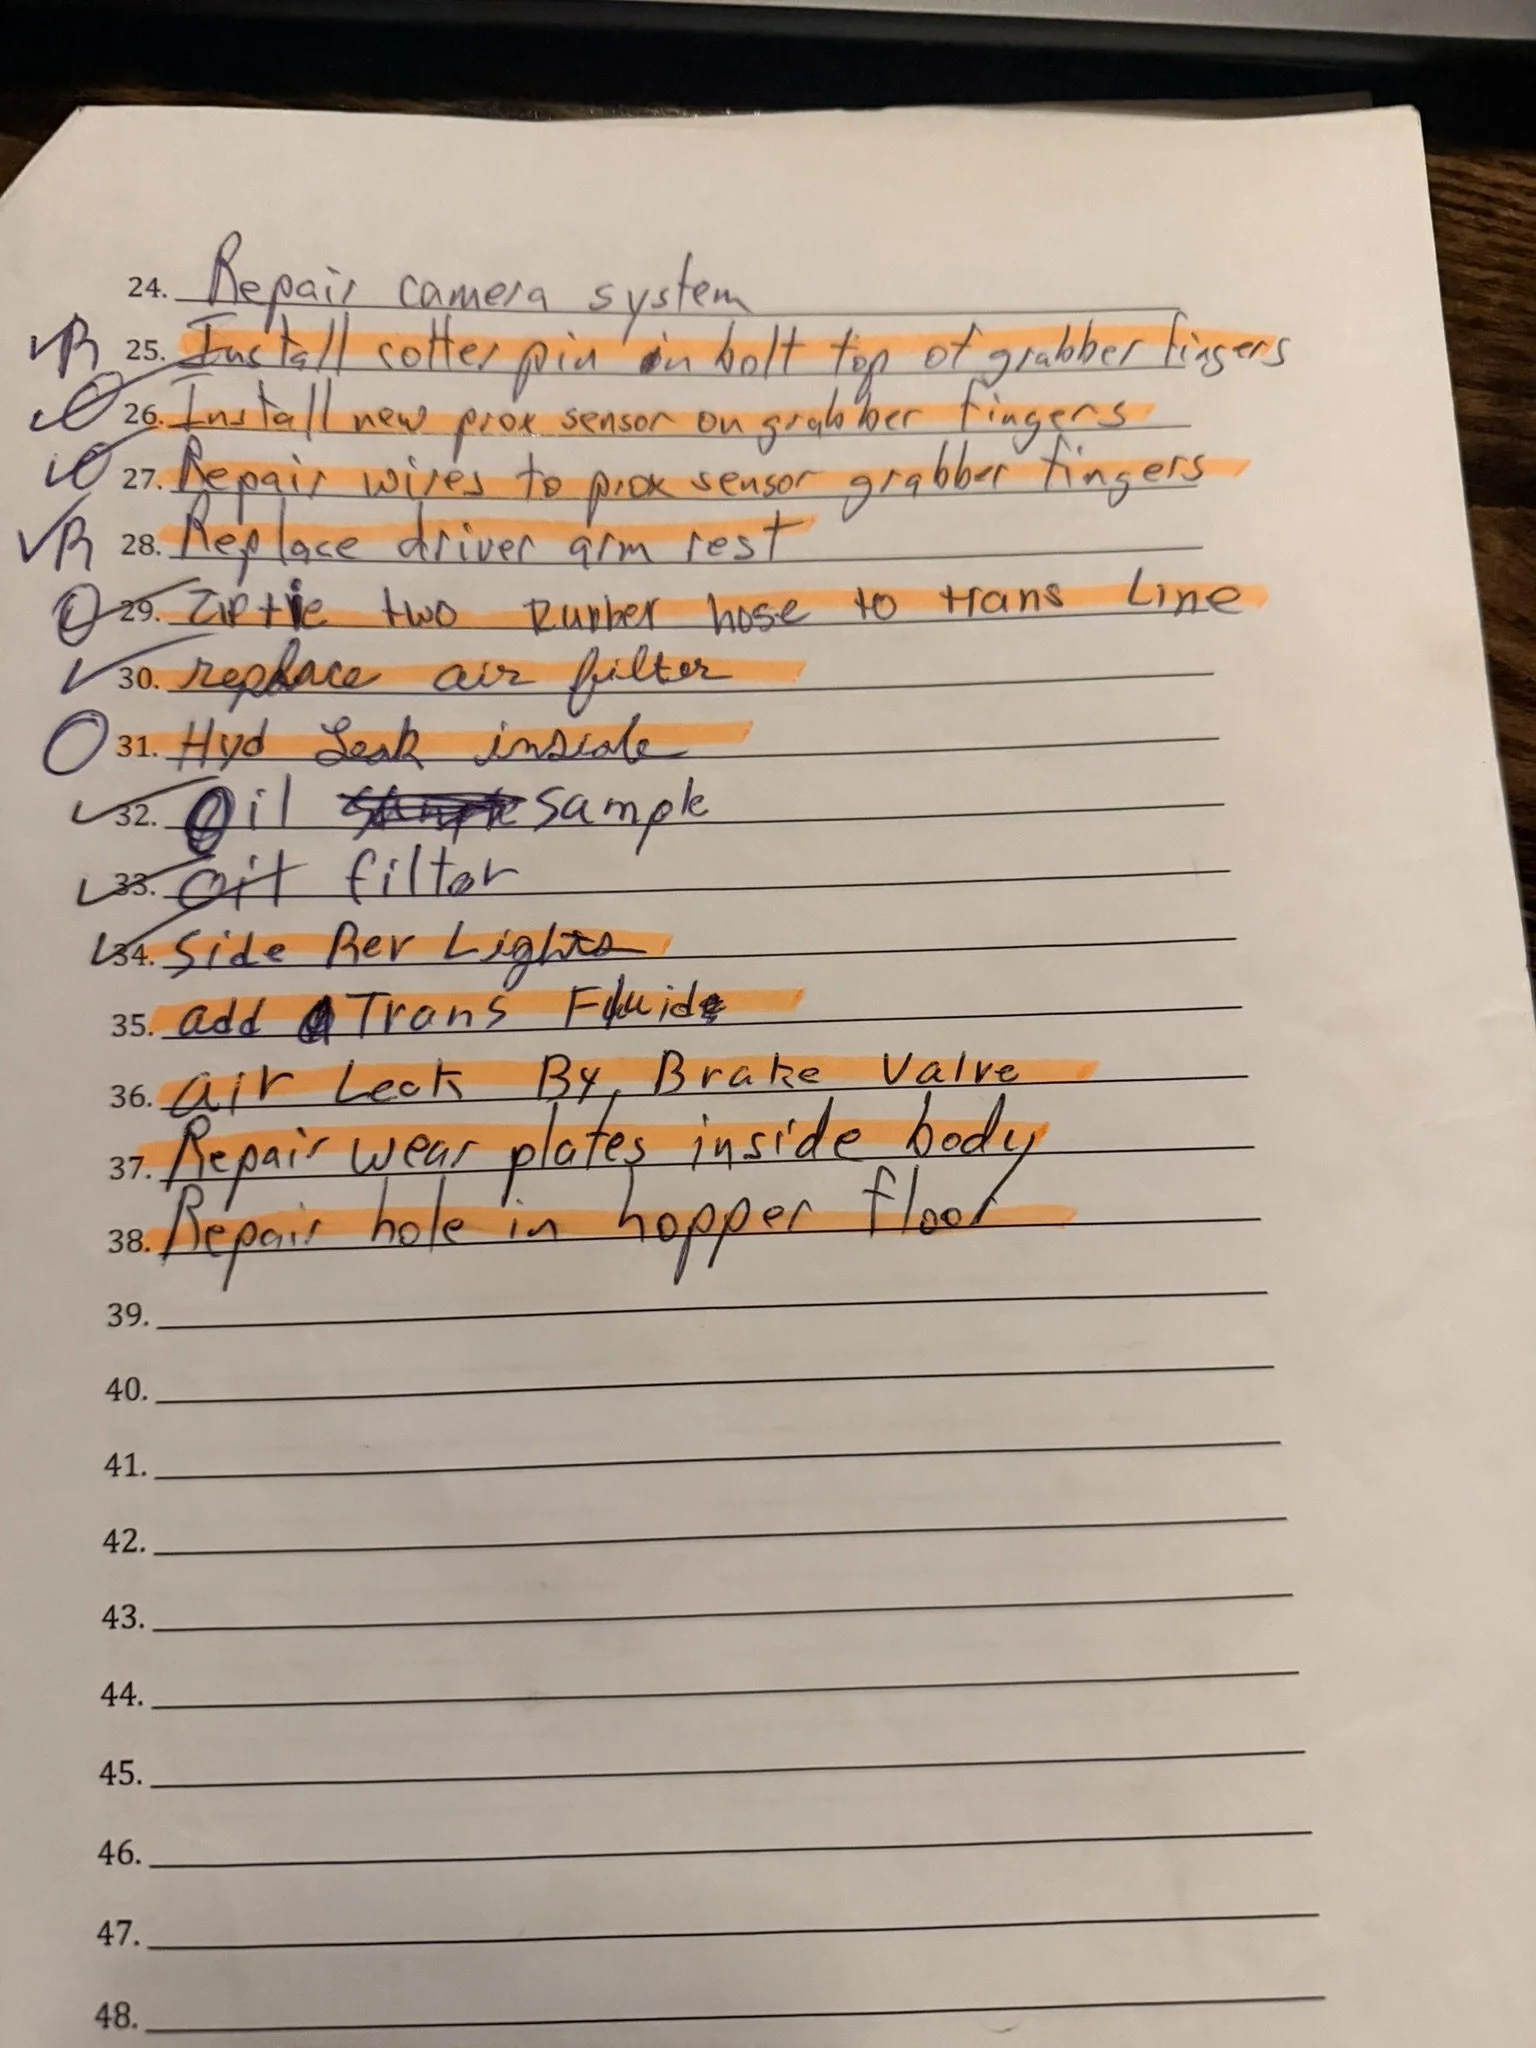 24. Repair camera system
R 25. Install cotter pin in bolt top of grabber fingers
26. Install new prox sensor on grabber fingers
27. Repair wires to prox sensor grabber fingers
R 28. Replace driver arm rest
29. Ziptie two Rubber hose to trans Line
30. replace air filter
31. Hyd Leak inside
32. Oil sample
33. oil filter
34. Side Rev Lights
35. add Trans Fluid
36. air Leak By Brake Valve
37. Repair wear plates inside body
38. Repair hole in hopper floor
39.
40.
41.
42.
43.
44.
45.
46.
47.
48.